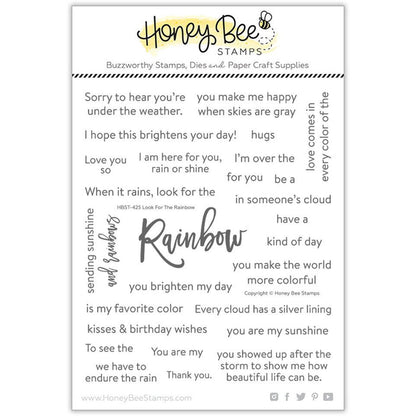 Honey Bee
STAMPS
Buzzworthy Stamps, Dies and Paper Craft Supplies
Sorry to hear you're
under the weather.
you make me happy
when skies are gray
love comes in
every color of the
I hope this brightens your day!
hugs
Love you
so
I am here for you,
rain or shine
I'm over the
for you
be a
When it rains, look for the
in someone's cloud
HBST-425 Look For The Rainbow
sending sunshine
and rainbows
Rainbow
have a
kind of day
you make the world
more colorful
you brighten my day
Copyright © Honey Bee Stamps
is my favorite color
Every cloud has a silver lining
kisses & birthday wishes
you are my sunshine
To see the
You are my
you showed up after the
storm to show me how
beautiful life can be.
we have to
endure the rain
Thank you.
www.HoneyBeeStamps.com